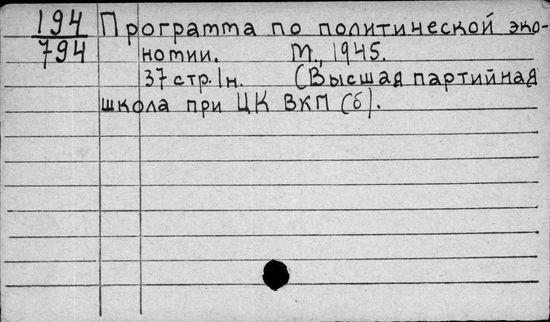 194 Программа по политической эко-
794 номии. М., 1945.
37 стр. 1 н. (Высшая партийная
школа при ЦК ВКП (б).